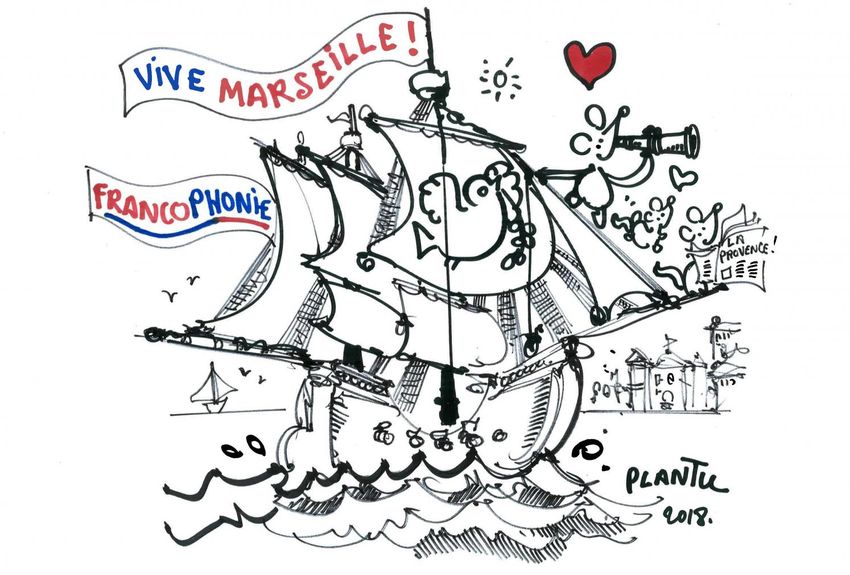 VIVE MARSEILLE !
FRANCOPHONIE
LA
PROVENCE !
PLANTU
2018.